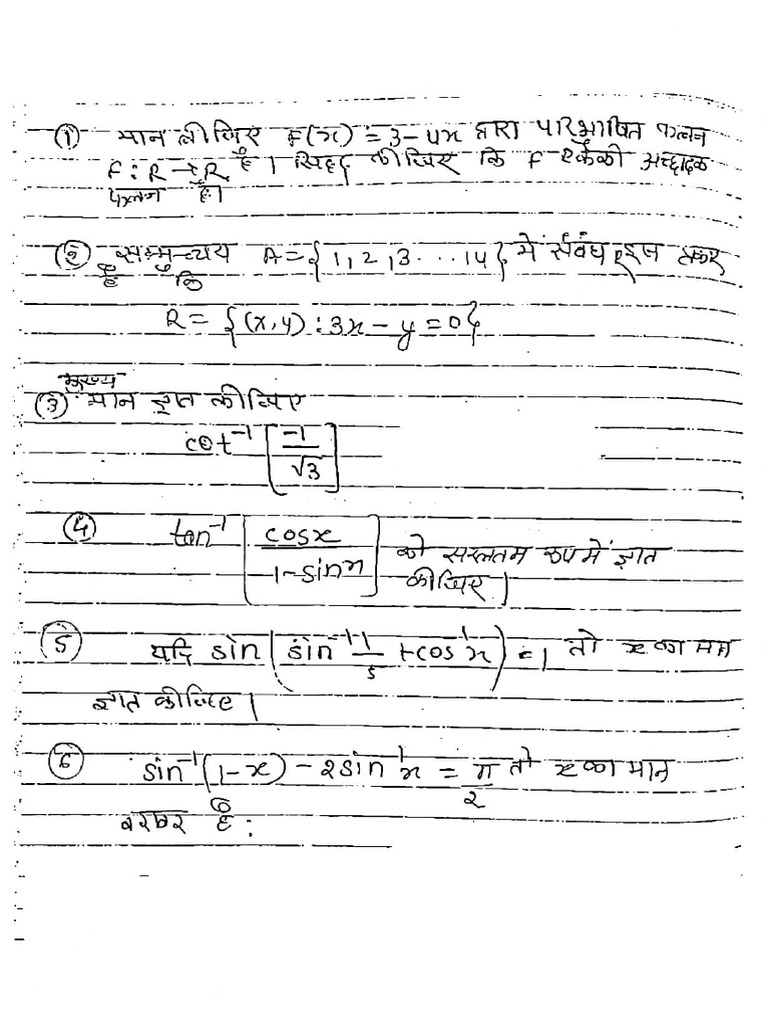 (1) मान लीजिए F(x) = 3-4x द्वारा परिभाषित फलन
F : R → R है। सिद्ध कीजिए कि F एकैकी आच्छादक
फलन है।
(2) समुच्चय A = {1, 2, 3 . . . . 14} में संबंध इस
है कि
R = {(x, y) : 3x - y = 0}
मुख्य
(3) मान ज्ञात कीजिए
cot⁻¹ [-1/√3]
(4) tan⁻¹ [cosx/1-sinx] को सरलतम रूप में ज्ञात
कीजिए।
(5) यदि sin (sin⁻¹ 1/5 + cos⁻¹x) = 1 तो x का मान
ज्ञात कीजिए।
(6) sin⁻¹(1-x) - 2sin⁻¹x = π/2 तो x का मान
बराबर है :